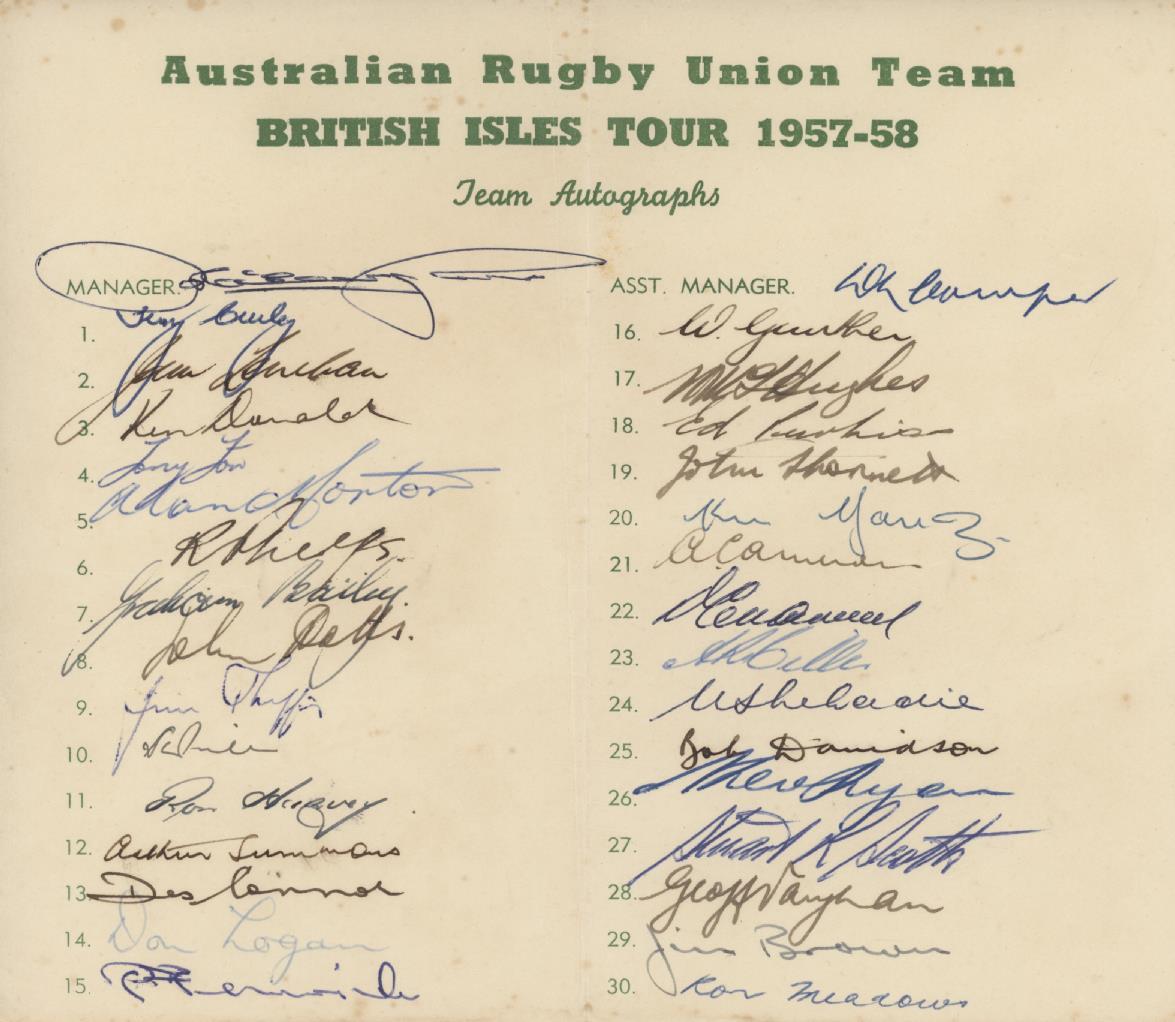 Australian Rugby Union Team
BRITISH ISLES TOUR 1957-58
Team Autographs
MANAGER.
1. Terry Curley
2. Jim Lenehan
3. Ken Donald
4. Tony Fox
5. Alan Morton
6. R Phelps.
7. Graham Bailey.
8. John Potts.
9. Jim Phipps
10.
11. Ron Harvey
12. Arthur Summons
13. Des Connor
14. Don Logan
15. Fenwicke
ASST. MANAGER.
16. W. Gunther
17. Hughes
18. Ed Purkiss
19. John Thornett
20. Ken Yanz
21. A Cameron
22. Emanuel
23.
24. N Shehadie
25. Bob Davidson
26. Ryan
27. Stuart Scotts
28. Geoff Vaughan
29. Jim Brown
30. Ron Meadows